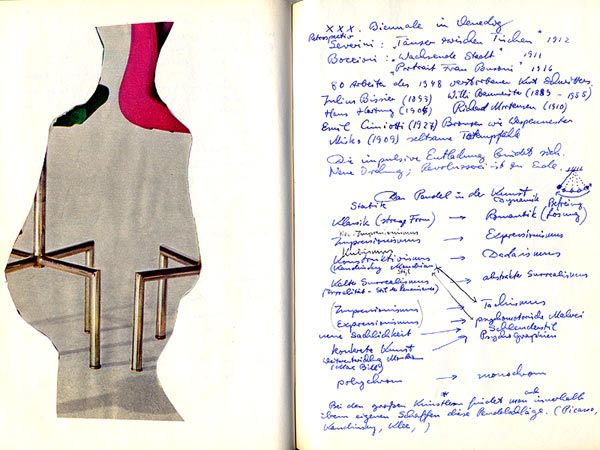 XXX. Biennale in Venedig
Retrospektiv
Severini: „Tänzer zwischen Tischen" 1912
Boccioni: „Wachsende Stadt" 1911
„Portrait Frau Busoni" 1916
80 Arbeiten des 1948 verstorbenen Kurt Schwitters
Julius Bissier (1893) Willi Baumeister (1889-1955)
Hans Hartung (1904) Richard Mortensen (1910)
Emil Cimiotti (1927) Bronzen wie Wespennester
Mirko (1909) seltsame Totempfähle
Die impulsive Entladung bindet sich.
Neue Ordnung; Revolution ist zu Ende.
Das Pendel in der Kunst
Statik Dynamik Befreiung
Klassik (strenge Form) → Romantik (Lösung)
Neo. Impressionismus
Impressionismus → Expressionismus
Kubismus
Konstruktivismus → Dadaismus
(Kandinsky Mondrian)
Stijl
Kalter Surrealismus → abstrakter Surrealismus
Impressionismus → Tachismus
Expressionismus psychomotorische Malerei
neue Sachlichkeit → Schleuderstil
Konkrete Kunst Psychographien
(Max Bill)
polychrom → monochrom
Bei den großen Künstlern findet man auch innerhalb
ihrem eigenen Schaffen diese Pendelschläge. (Picasso,
Kandinsky, Klee, )